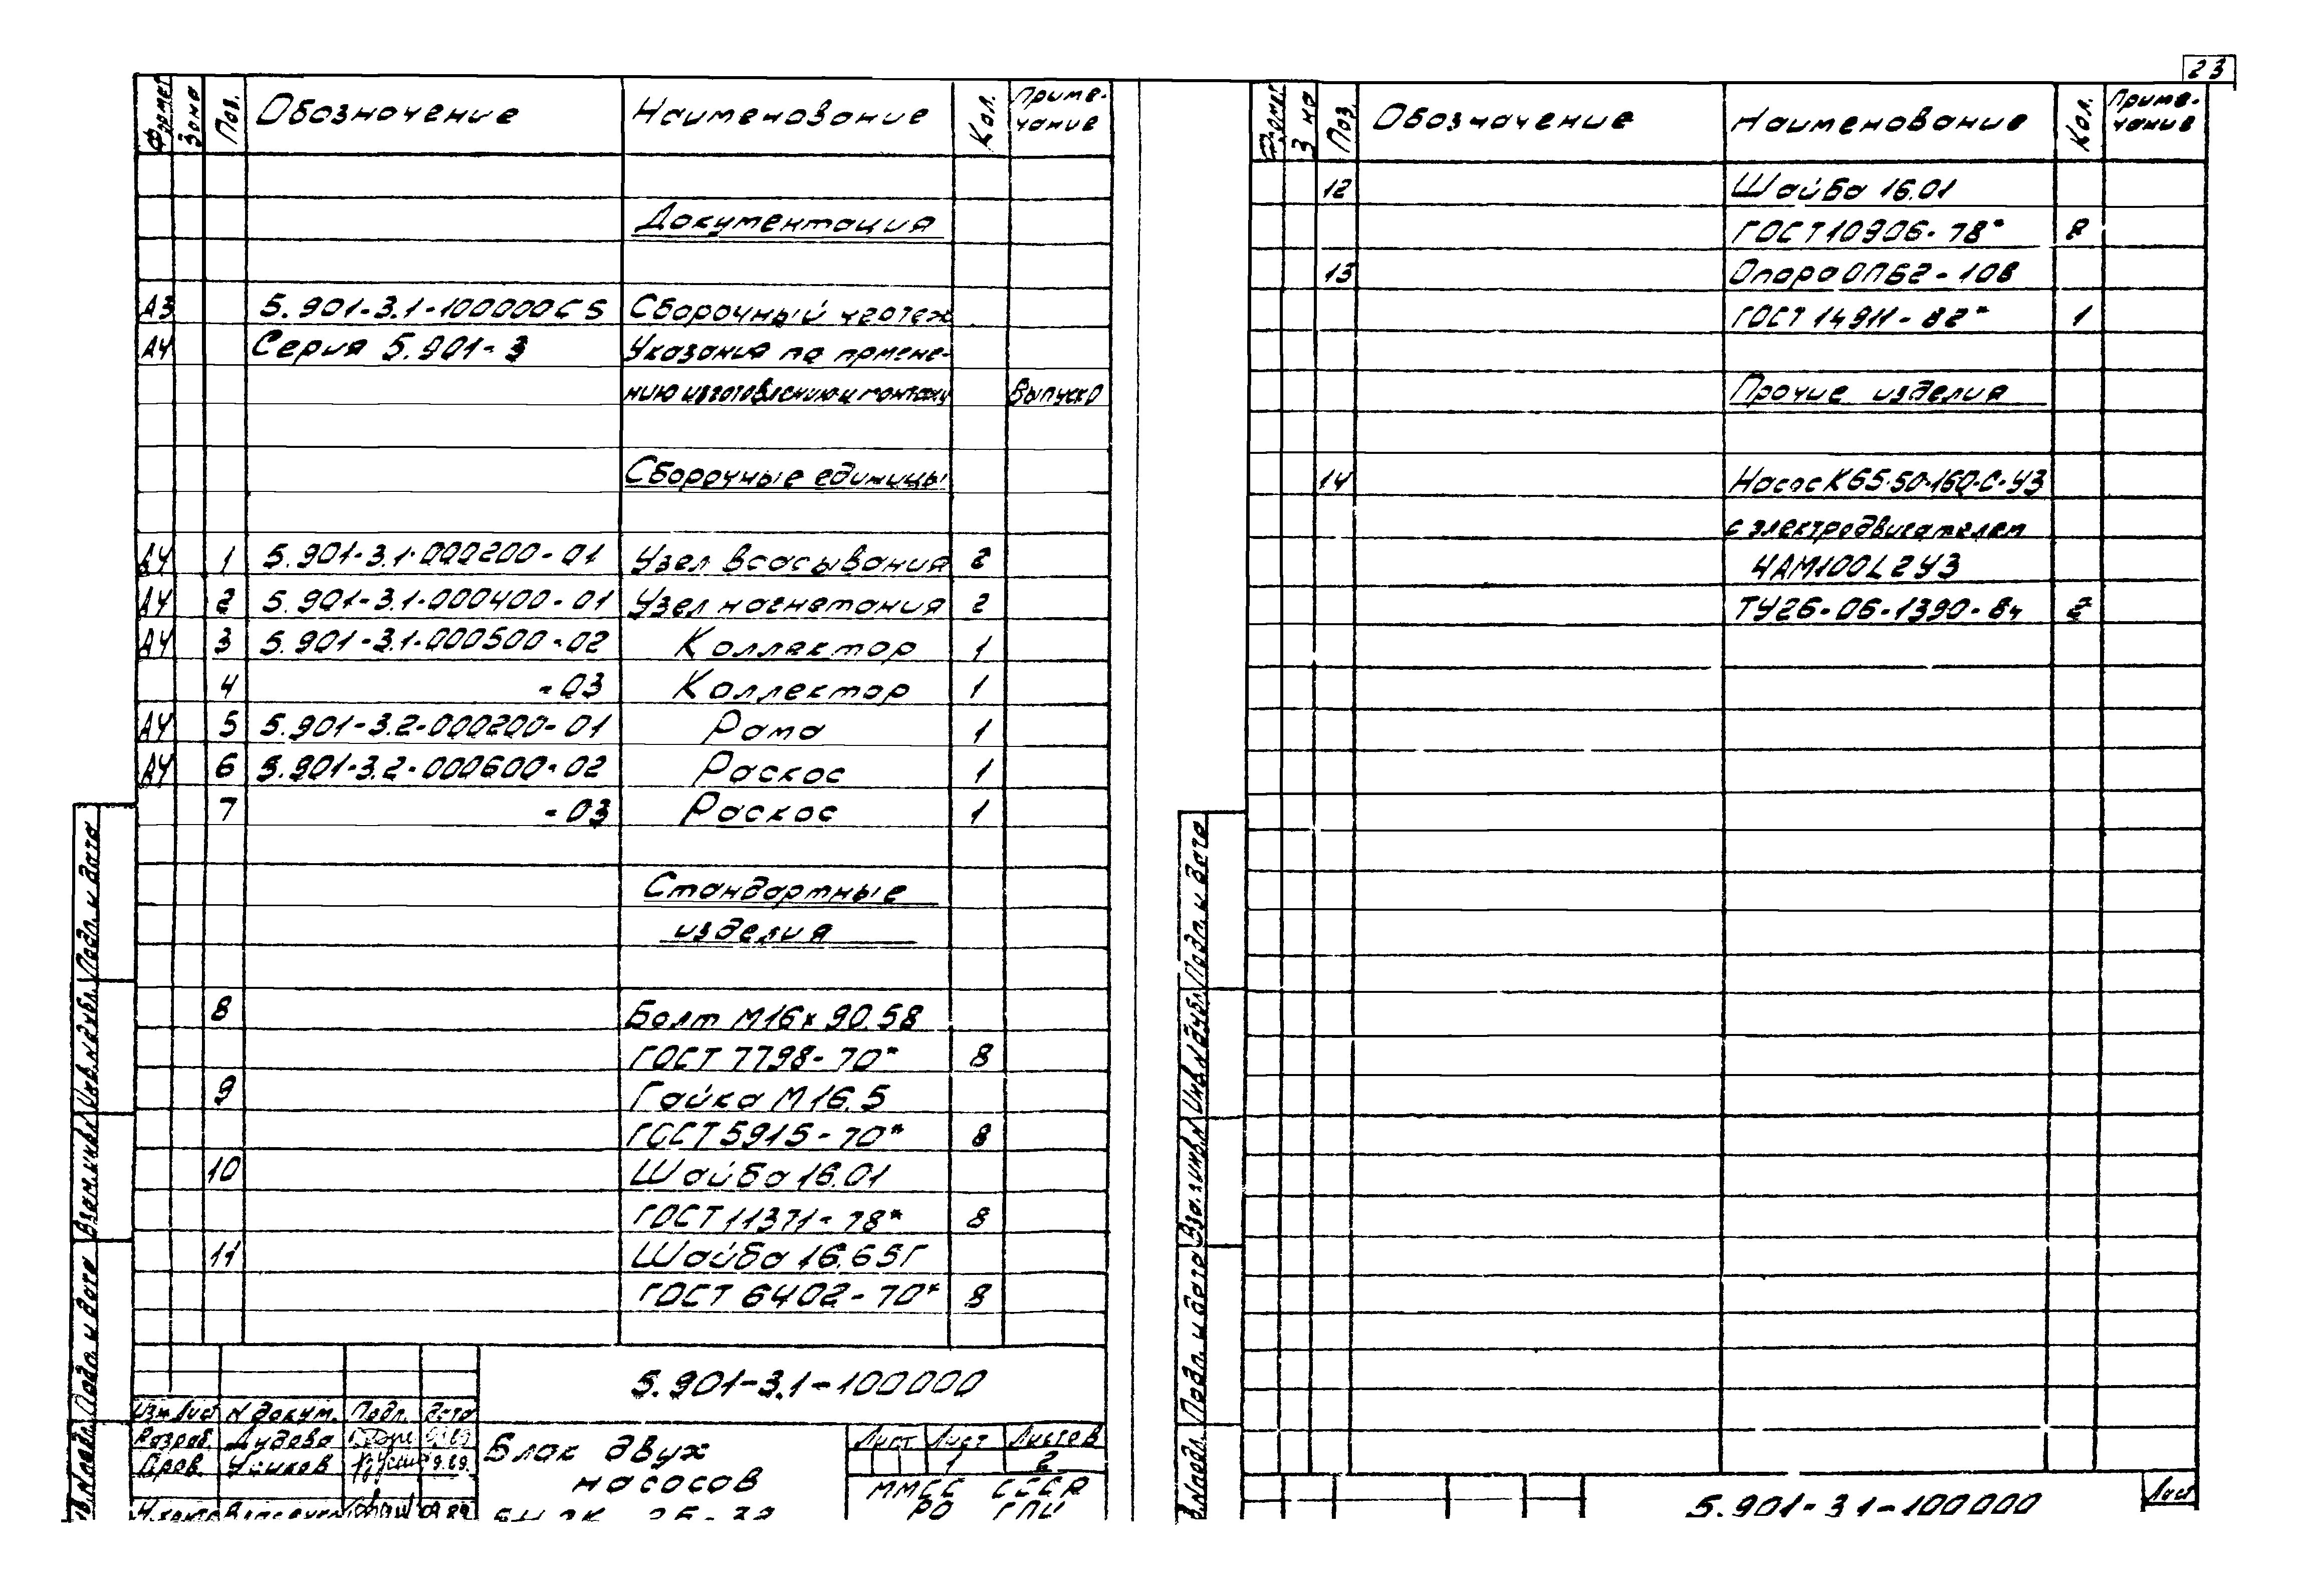 23
Формат Зона Поз. Обозначение Наименование Кол. Приме-
чание
Документация
А3 5.901-3.1-100000СБ Сборочный чертеж
А4 Серия 5.901-3 Указания по примене-
нию изготовлению и монтажу Выпуск 0
Сборочные единицы
А4 1 5.901-3.1-000200-01 Узел всасывания 2
А4 2 5.901-3.1-000400-01 Узел нагнетания 2
А4 3 5.901-3.1-000500-02 Коллектор 1
4 -03 Коллектор 1
А4 5 5.901-3.2-000200-01 Рама 1
А4 6 5.901-3.2-000600-02 Раскос 1
7 -03 Раскос 1
Стандартные
изделия
8 Болт М16х90.58
ГОСТ 7798-70* 8
9 Гайка М16.5
ГОСТ 5915-70* 8
10 Шайба 16.01
ГОСТ 11371-78* 8
11 Шайба 16.65Г
ГОСТ 6402-70* 8
Подл. и дата Взам. инв. № Инв. № дубл. Подп. и дата
5.901-3.1-100000
Изм Лист № докум. Подп. Дата
Разраб. Дудова
Пров. Усиков 9.89.
Блок двух
насосов
Лист Лист Листов
1 2
ММСС СССР
РО ГПИ
09.89
Формат Зона Поз. Обозначение Наименование Кол. Приме-
чание
12 Шайба 16.01
ГОСТ 10906-78* 8
13 Опора ОПБ2-108
ГОСТ 14911-82* 1
Прочие изделия
14 Насос К65-50-160-С-У3
с электродвигателем
4АМ100L2У3
ТУ26-06-1390-84 2
Подп. и дата Взам. инв. № Инв. № дубл. Подп. и дата
5.901-3.1-100000
Лист